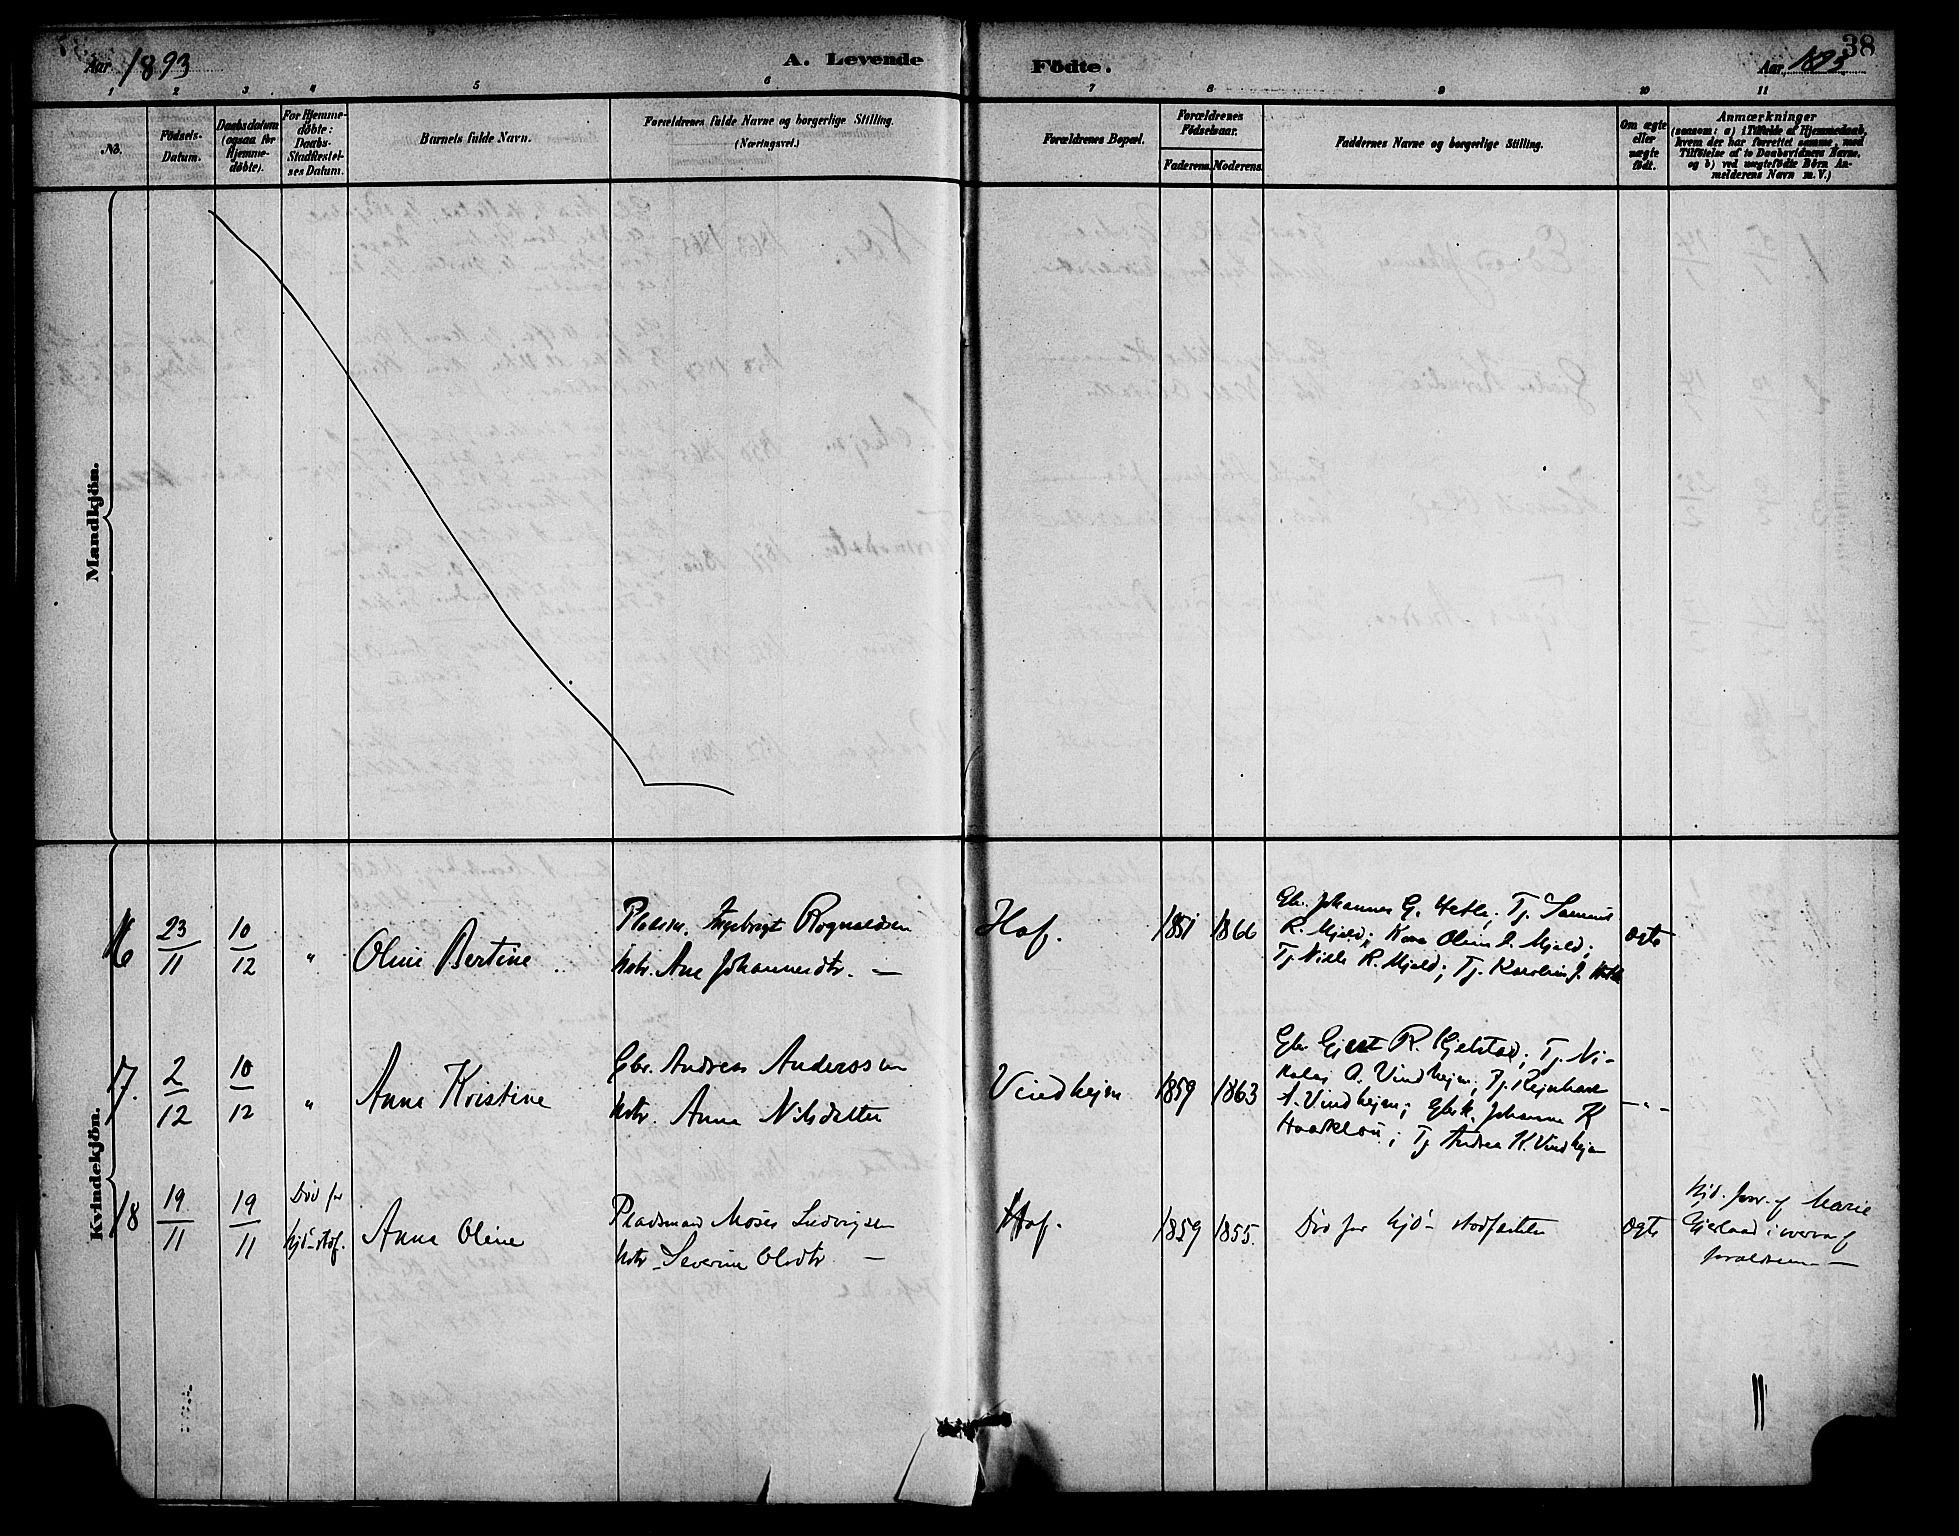 38
Aar 1893
A. Levende Födte.
Aar 1893
1 2 3 4 5 6 7 8 9 10 11
No.
Födsels-
Datum.
Daabsdatum
(ogsaa for
Hjemme-
döbte).
For Hjemme-
döbte:
Daabs-
Stadfæstel-
ses Datum.
Barnets fulde Navn.
Forældrenes fulde Navne og borgerlige Stilling.
(Næringsvei.)
Forældrenes Bopæl.
Forældrenes
Födselsaar.
Faderens. Moderens.
Faddernes Navne og borgerlige Stilling.
Om ægte
eller
uægte
födt.
Anmærkninger
(saasom: a) i Tilfælde af Hjemmedaab,
hvem der har forrettet samme, med
Tilföielse af to Daabsvidners Navne,
og b) ved uægtefödte Börn An-
melderens Navn m. V.)
Mandkjön.
Kvindekjön.
16
23/11
10/12
"
Oline Bertine
Pladsm. Ingebrigt Rognaldsen
Hstr. Ane Johannesdtr. —
Hof.
1851
1866
Gbr. Johannes G. Hetle; Tj. Samuel
R. Mjeld; Kone Oline J. Mjeld;
Tj. Nille R. Mjeld; Tj. Karoline J. Hetle
Ægte
17.
2/12
10/12
"
Anna Kristine
Gbr. Andreas Anderssen
Hstr. Anna Nilsdatter
Vindhejm
1859
1863
Gbr. R. Kjelstad; Tj. Ni-
kolai A. Vindhejm; Tj. Rejnhard
A. Vindhejm; Gbrk. Johanne R
Haaklou; Tj. Andrea K. Vindhejm
— " —
18
19/11
19/11
Död for
hjd-stdf.
Anna Oline
Pladsmand Moses Ludvigsen
Hstr. Severine Olsdtr —
Hof.
1859
1855.
Död for hjd- stadfæstelsen
Ægte
Hjd. forr. af Marie
Gjerland i overv. af
forældrene —